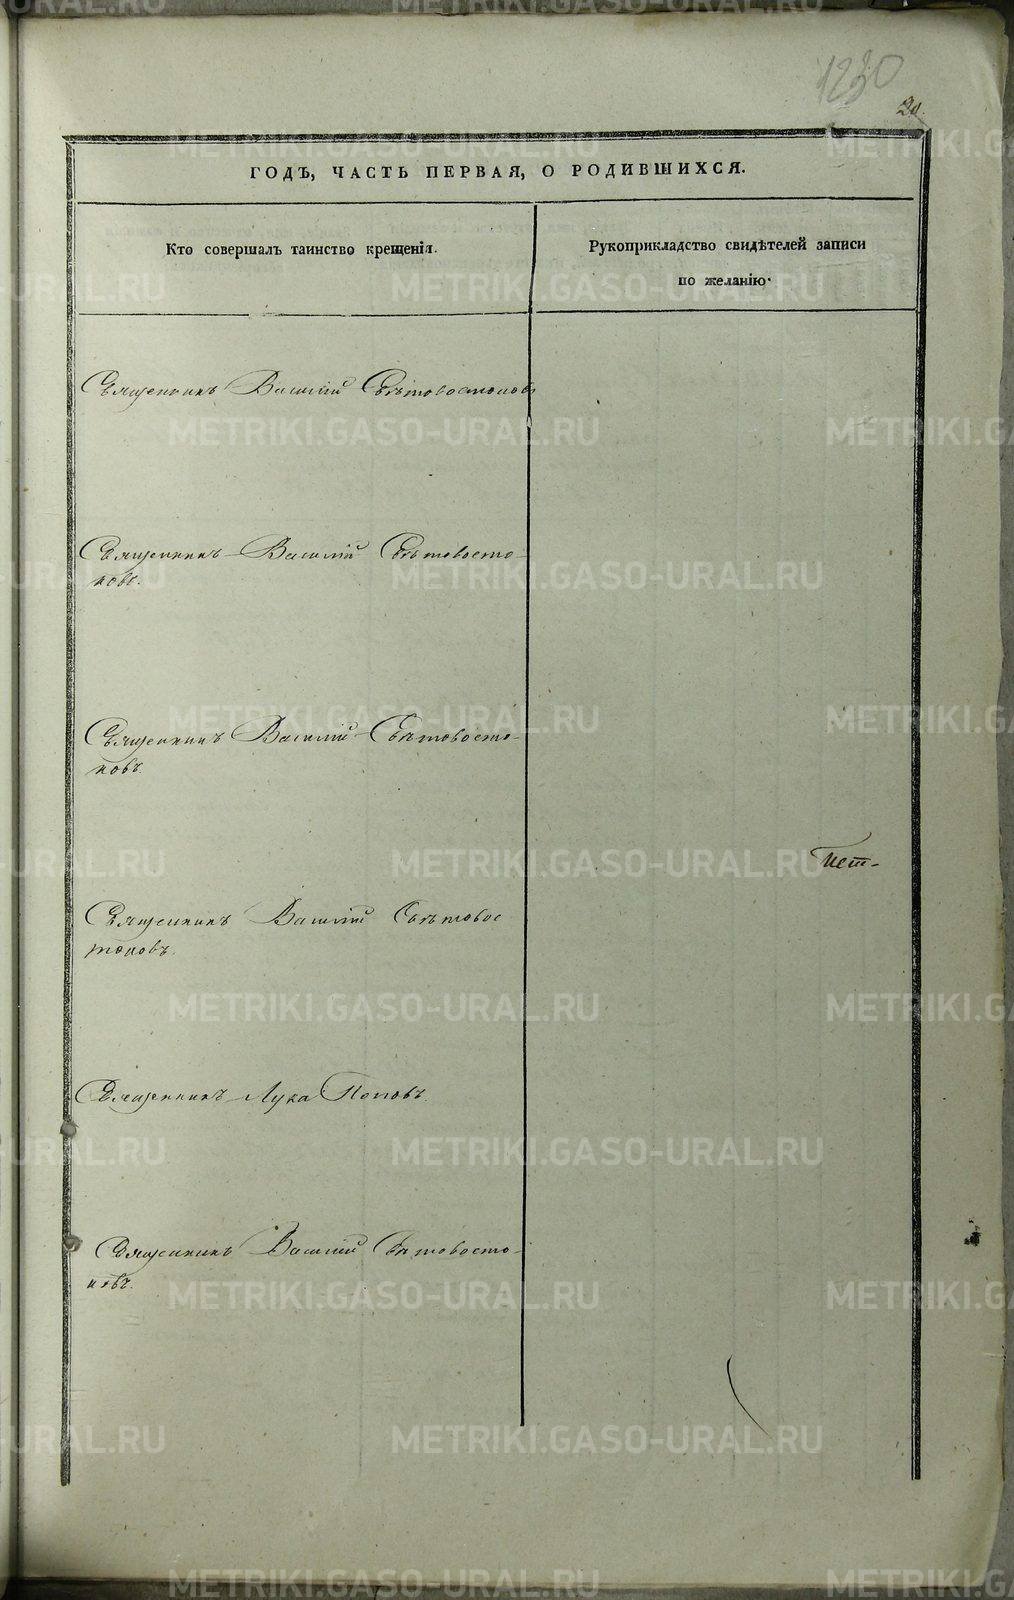 1230
ГОДЪ, ЧАСТЬ ПЕРВАЯ, О РОДИВШИХСЯ.
Кто совершалъ таинство крещенія.
Рукоприкладство свидѣтелей записи
по желанію.
Священникъ Василій Свѣтовостоковъ
Священникъ Василій Свѣтовосто-
ковъ.
Священникъ Василій Свѣтовосто-
ковъ.
Священникъ Василій Свѣтовос
токовъ.
Священникъ Лука Поповъ.
Священникъ Василій Свѣтовосто-
ковъ.
METRIKI.GASO-URAL.RU